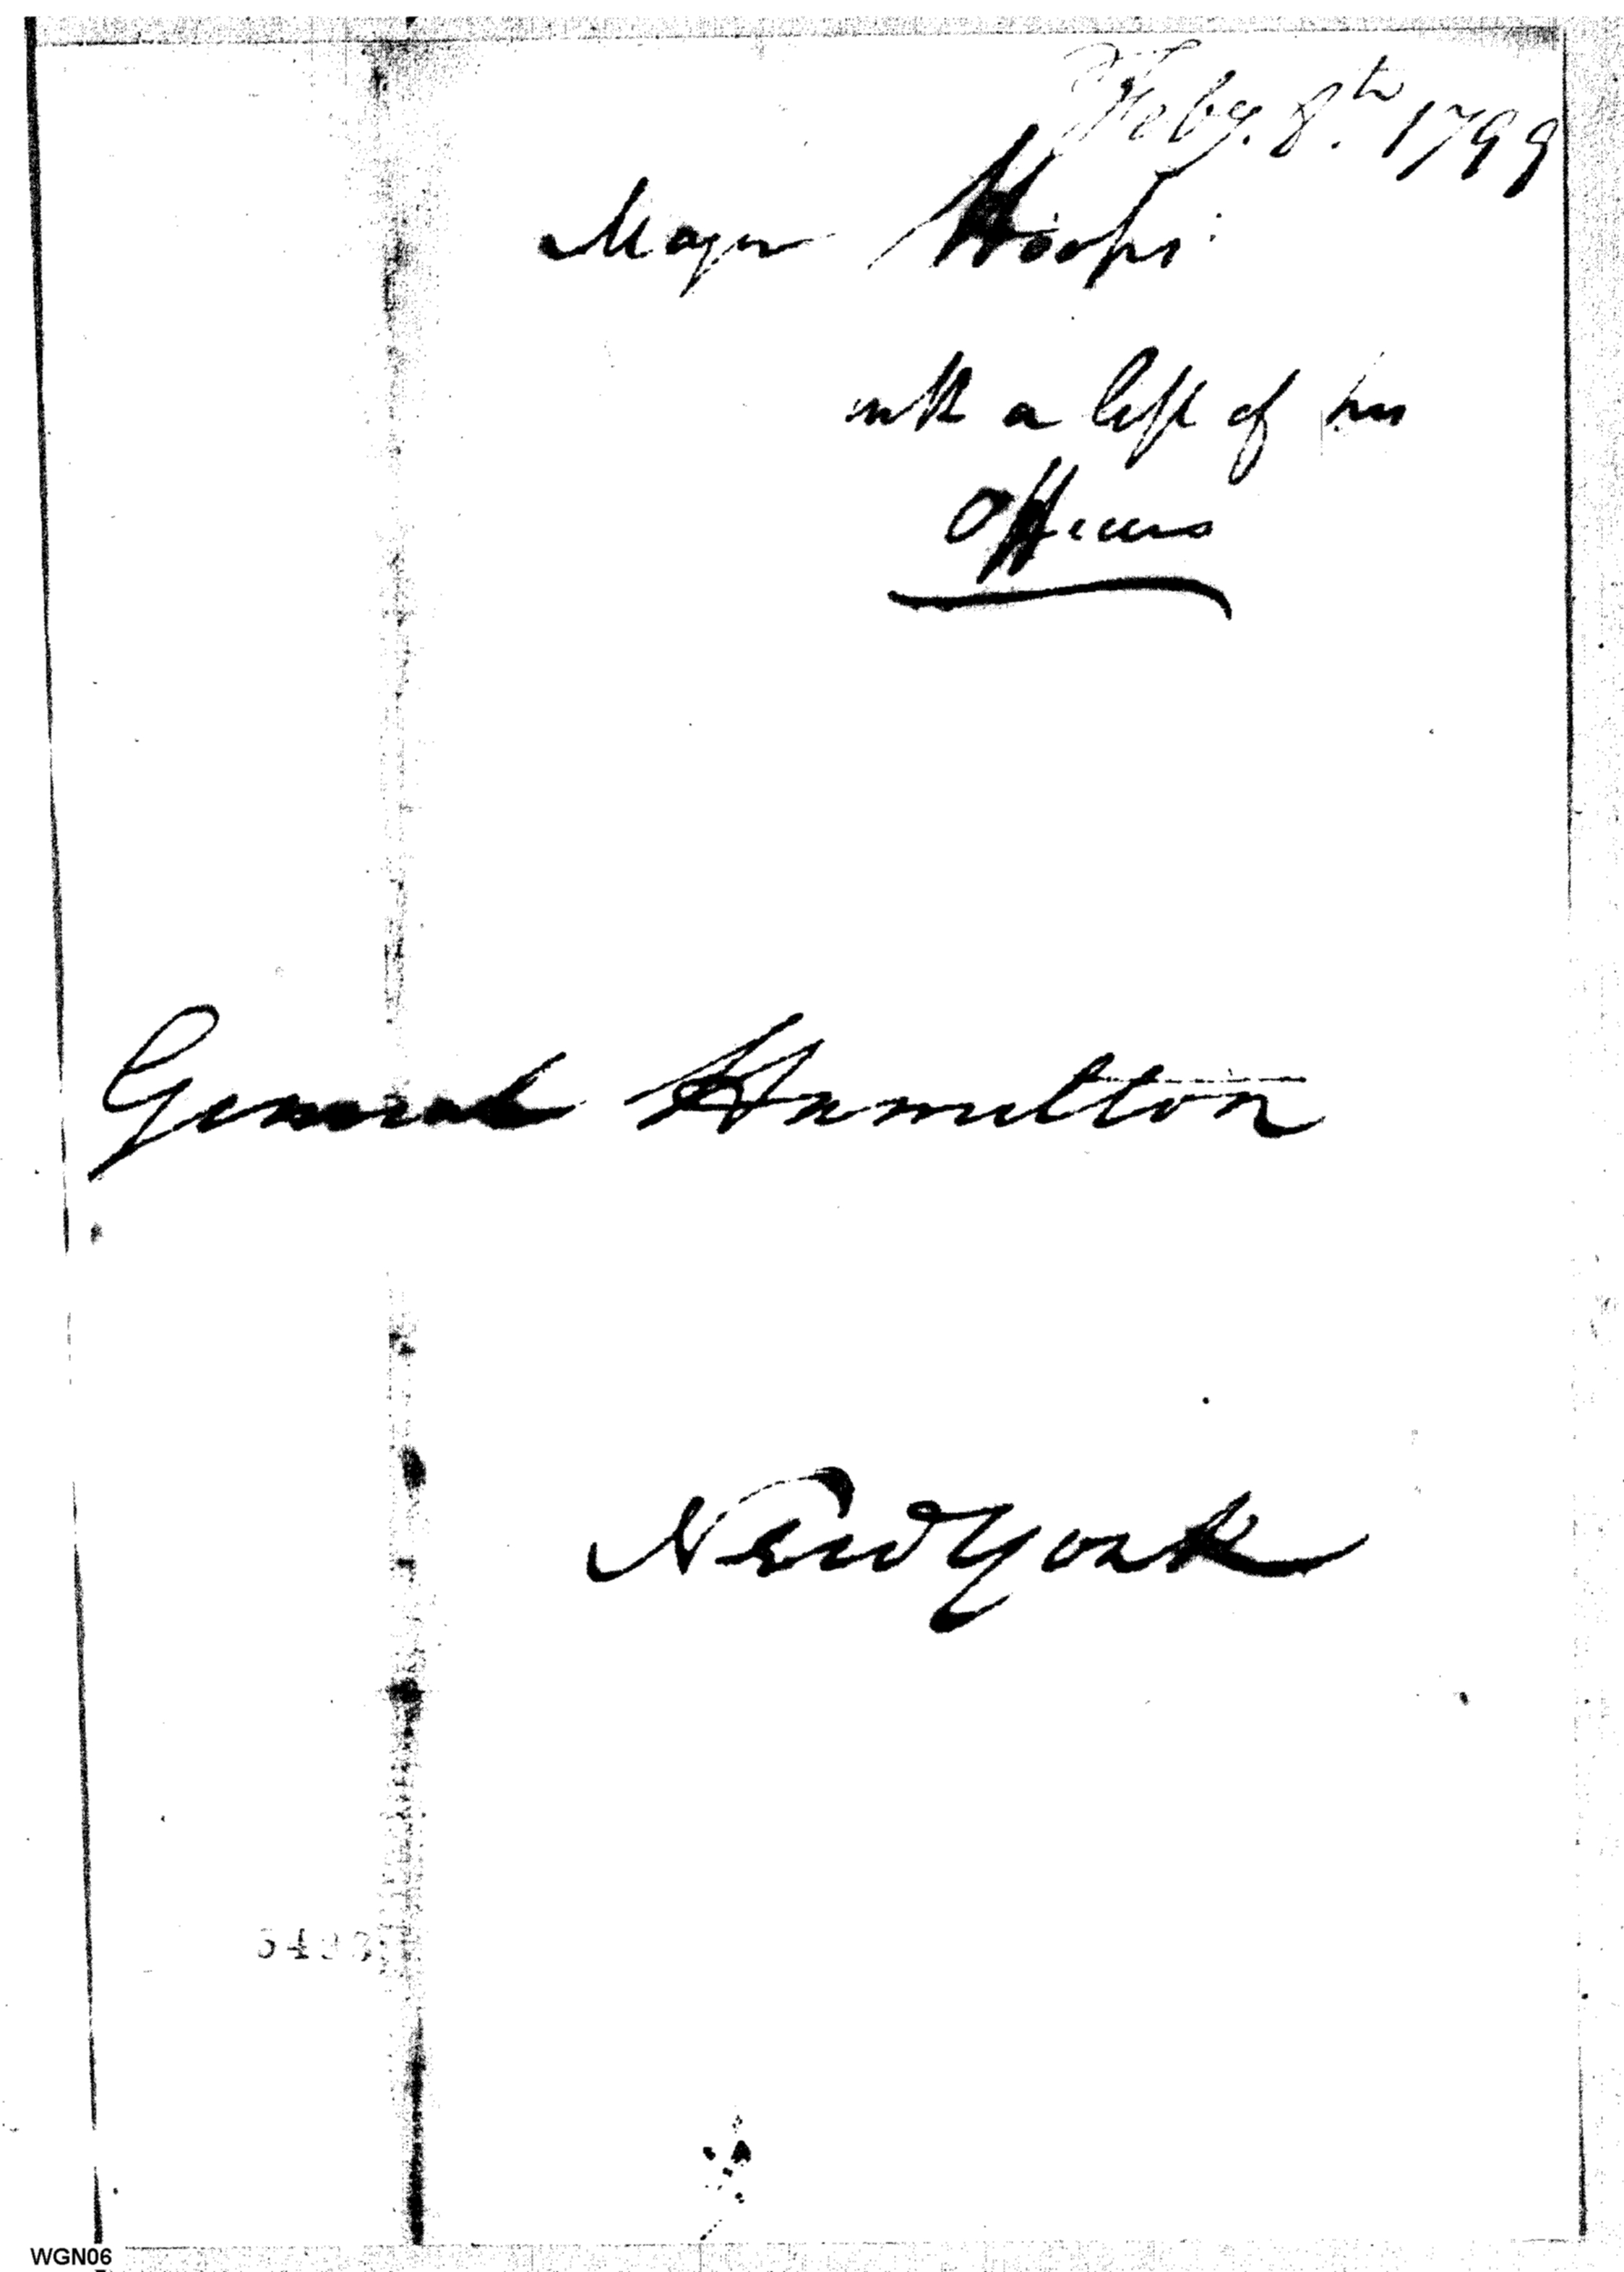 Feby. 8th. 1799
Major Hoops
with a list of his
Officers
General Hamilton
New York
WGN06